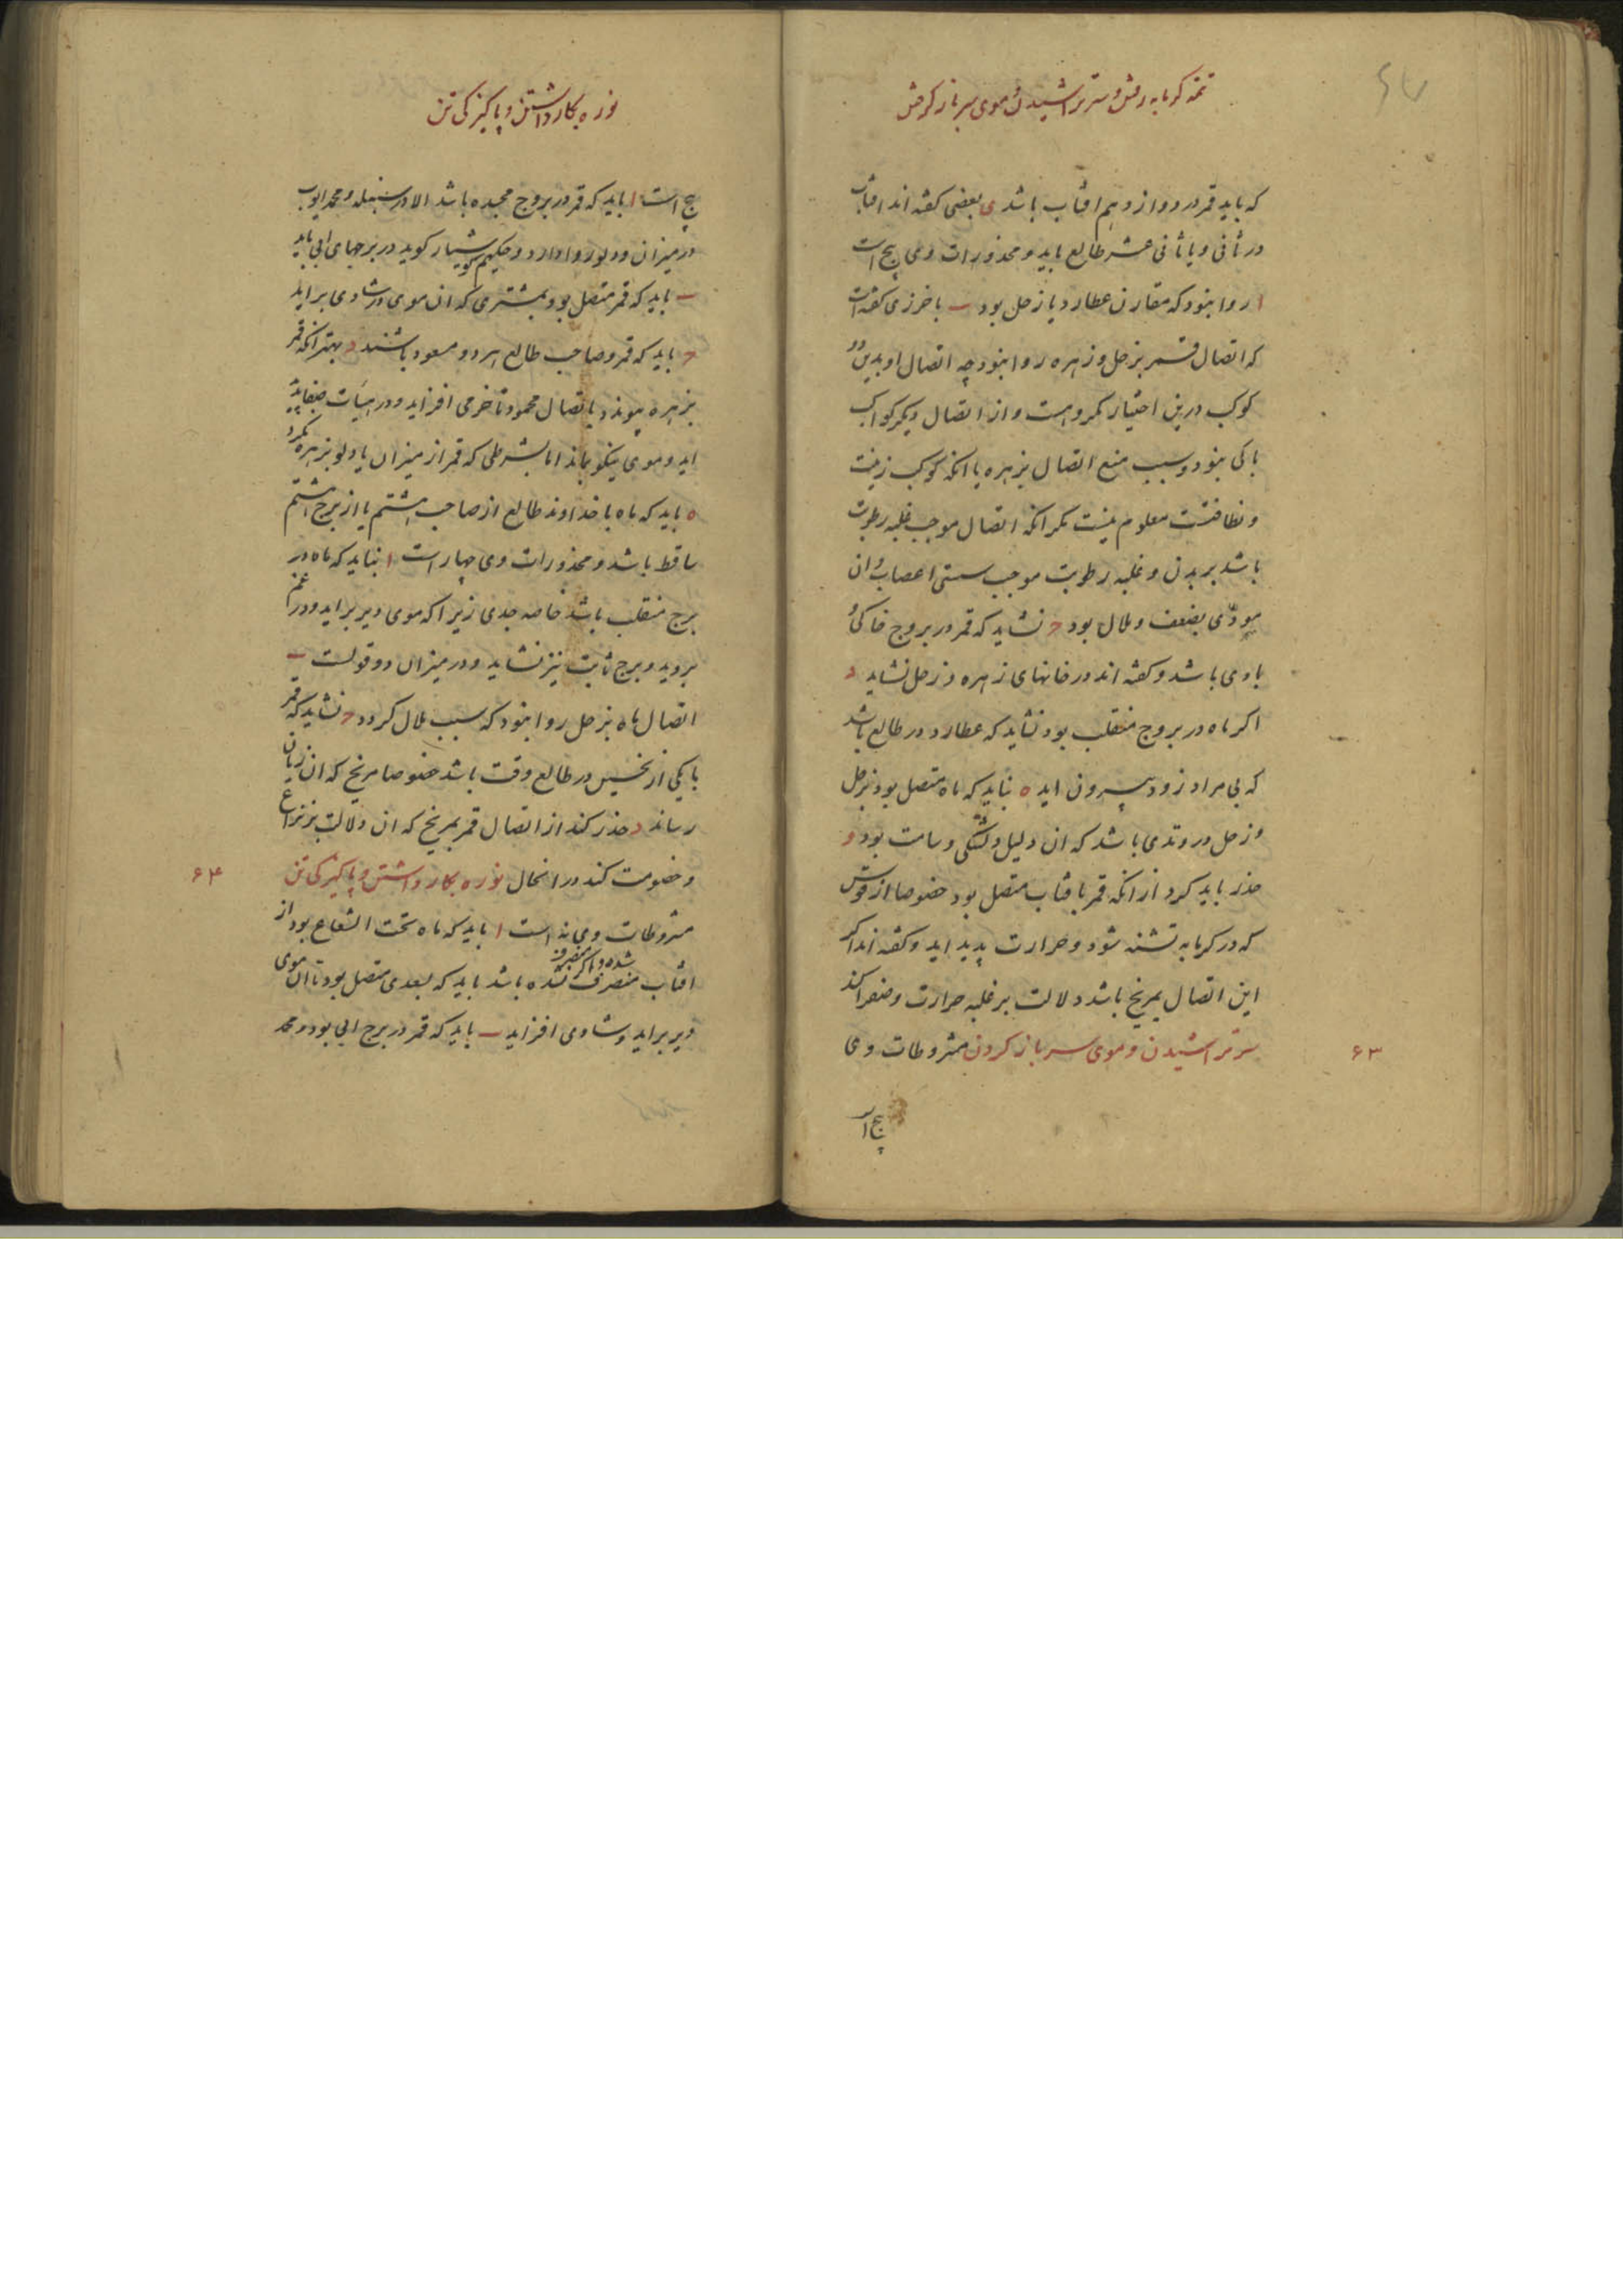 تتمه کرمابه رفتن و سر تراشیدن و موی سر باز کردن
که باید قمر در دوازدهم افتاب باشد ی بعضی کفته اند افتاب
در ثانی و یا ثانی عشر طالع باید و محذورات وی پنج است
ا روا نبود که مقارن عطارد یا زحل بود ب باخرزی کفته است
که اتصال قمر بزحل و زهره روا نبود چه اتصال او بدین دو
کوکب درین اختیار مکروهست و از اتصال دیکر کواکب
باکی نبود و سبب منع اتصال بزهره با انکه کوکب زینت
و نظافتست معلوم نیست مکر انکه اتصال موجب غلبه رطوبت
باشد بر بدن و غلبه رطوبت موجب سستی اعصاب و ان
مودّی بضعف و ملال بود ج نشاید که قمر در بروج خاکی و
بادی باشد و کفته اند در خانهای زهره و زحل نشاید د
اکر ماه در بروج منقلب بود نشاید که عطارد در طالع باشد
که بی مراد زود بیرون اید ه نباید که ماه متصل بود بزحل
و زحل در وتدی باشد که ان دلیل دلتنکی و سامت بود و
حذر باید کرد از انکه قمر بافتاب متصل بود خصوصا از قوس
که در کرمابه تشنه شود و حرارت پدید اید و کفته اند اکر
این اتصال بمریخ باشد دلالت بر غلبه حرارت و صفرا کند
سر تراشیدن و موی سر باز کردن مشروطات وی
۶۳
پنج ا
نوره بکار داشتن و پاکیزکی تن
پنج است ا باید که قمر در بروج مجسده باشد الا در سنبله و محمد ایوب
در میزان و دلو روا دارد و حکیم کوشیار کوید در برجهای ابی باید
ب باید که قمر متصل بود بمشتری که ان موی در شادی براید
ج باید که قمر و صاحب طالع هر دو مسعود باشند د بهتر انکه قمر
بزهره پیوندد باتصال محمود تا خرمی افزاید و در هیئات
اید و موی نیکو بماند اما بشرطی که قمر از میزان یا دلو بزهره نکرد
ه باید که ماه با خداوند طالع از صاحب هشتم یا از برج هشتم
ساقط باشد و محذورات وی چهار است ا نباید که ماه در
برج منقلب باشد خاصه جدی زیرا که موی دیر براید و در غم
بروید و برج ثابت نیز نشاید و در میزان دو قولست ب
اتصال ماه بزحل روا نبود که سبب ملال کردد ج نشاید که قمر
با یکی از نحسین در طالع وقت باشد خصوصا مریخ که ان زیان
رساند د حذر کند از اتصال قمر بمریخ که ان دلالت بر نزاع
و خصومت کند در انحال نوره بکار داشتن و پاکیزکی تن
۶۴
مشروطات وی نه است ا باید که ماه تحت الشعاع بود از
افتاب منصرف شده باشد باید که بسعدی متصل بود تا ان موی
شده و اکر منصرف
دیر براید و شادی افزاید ب باید که قمر در برج ابی بود و محمد